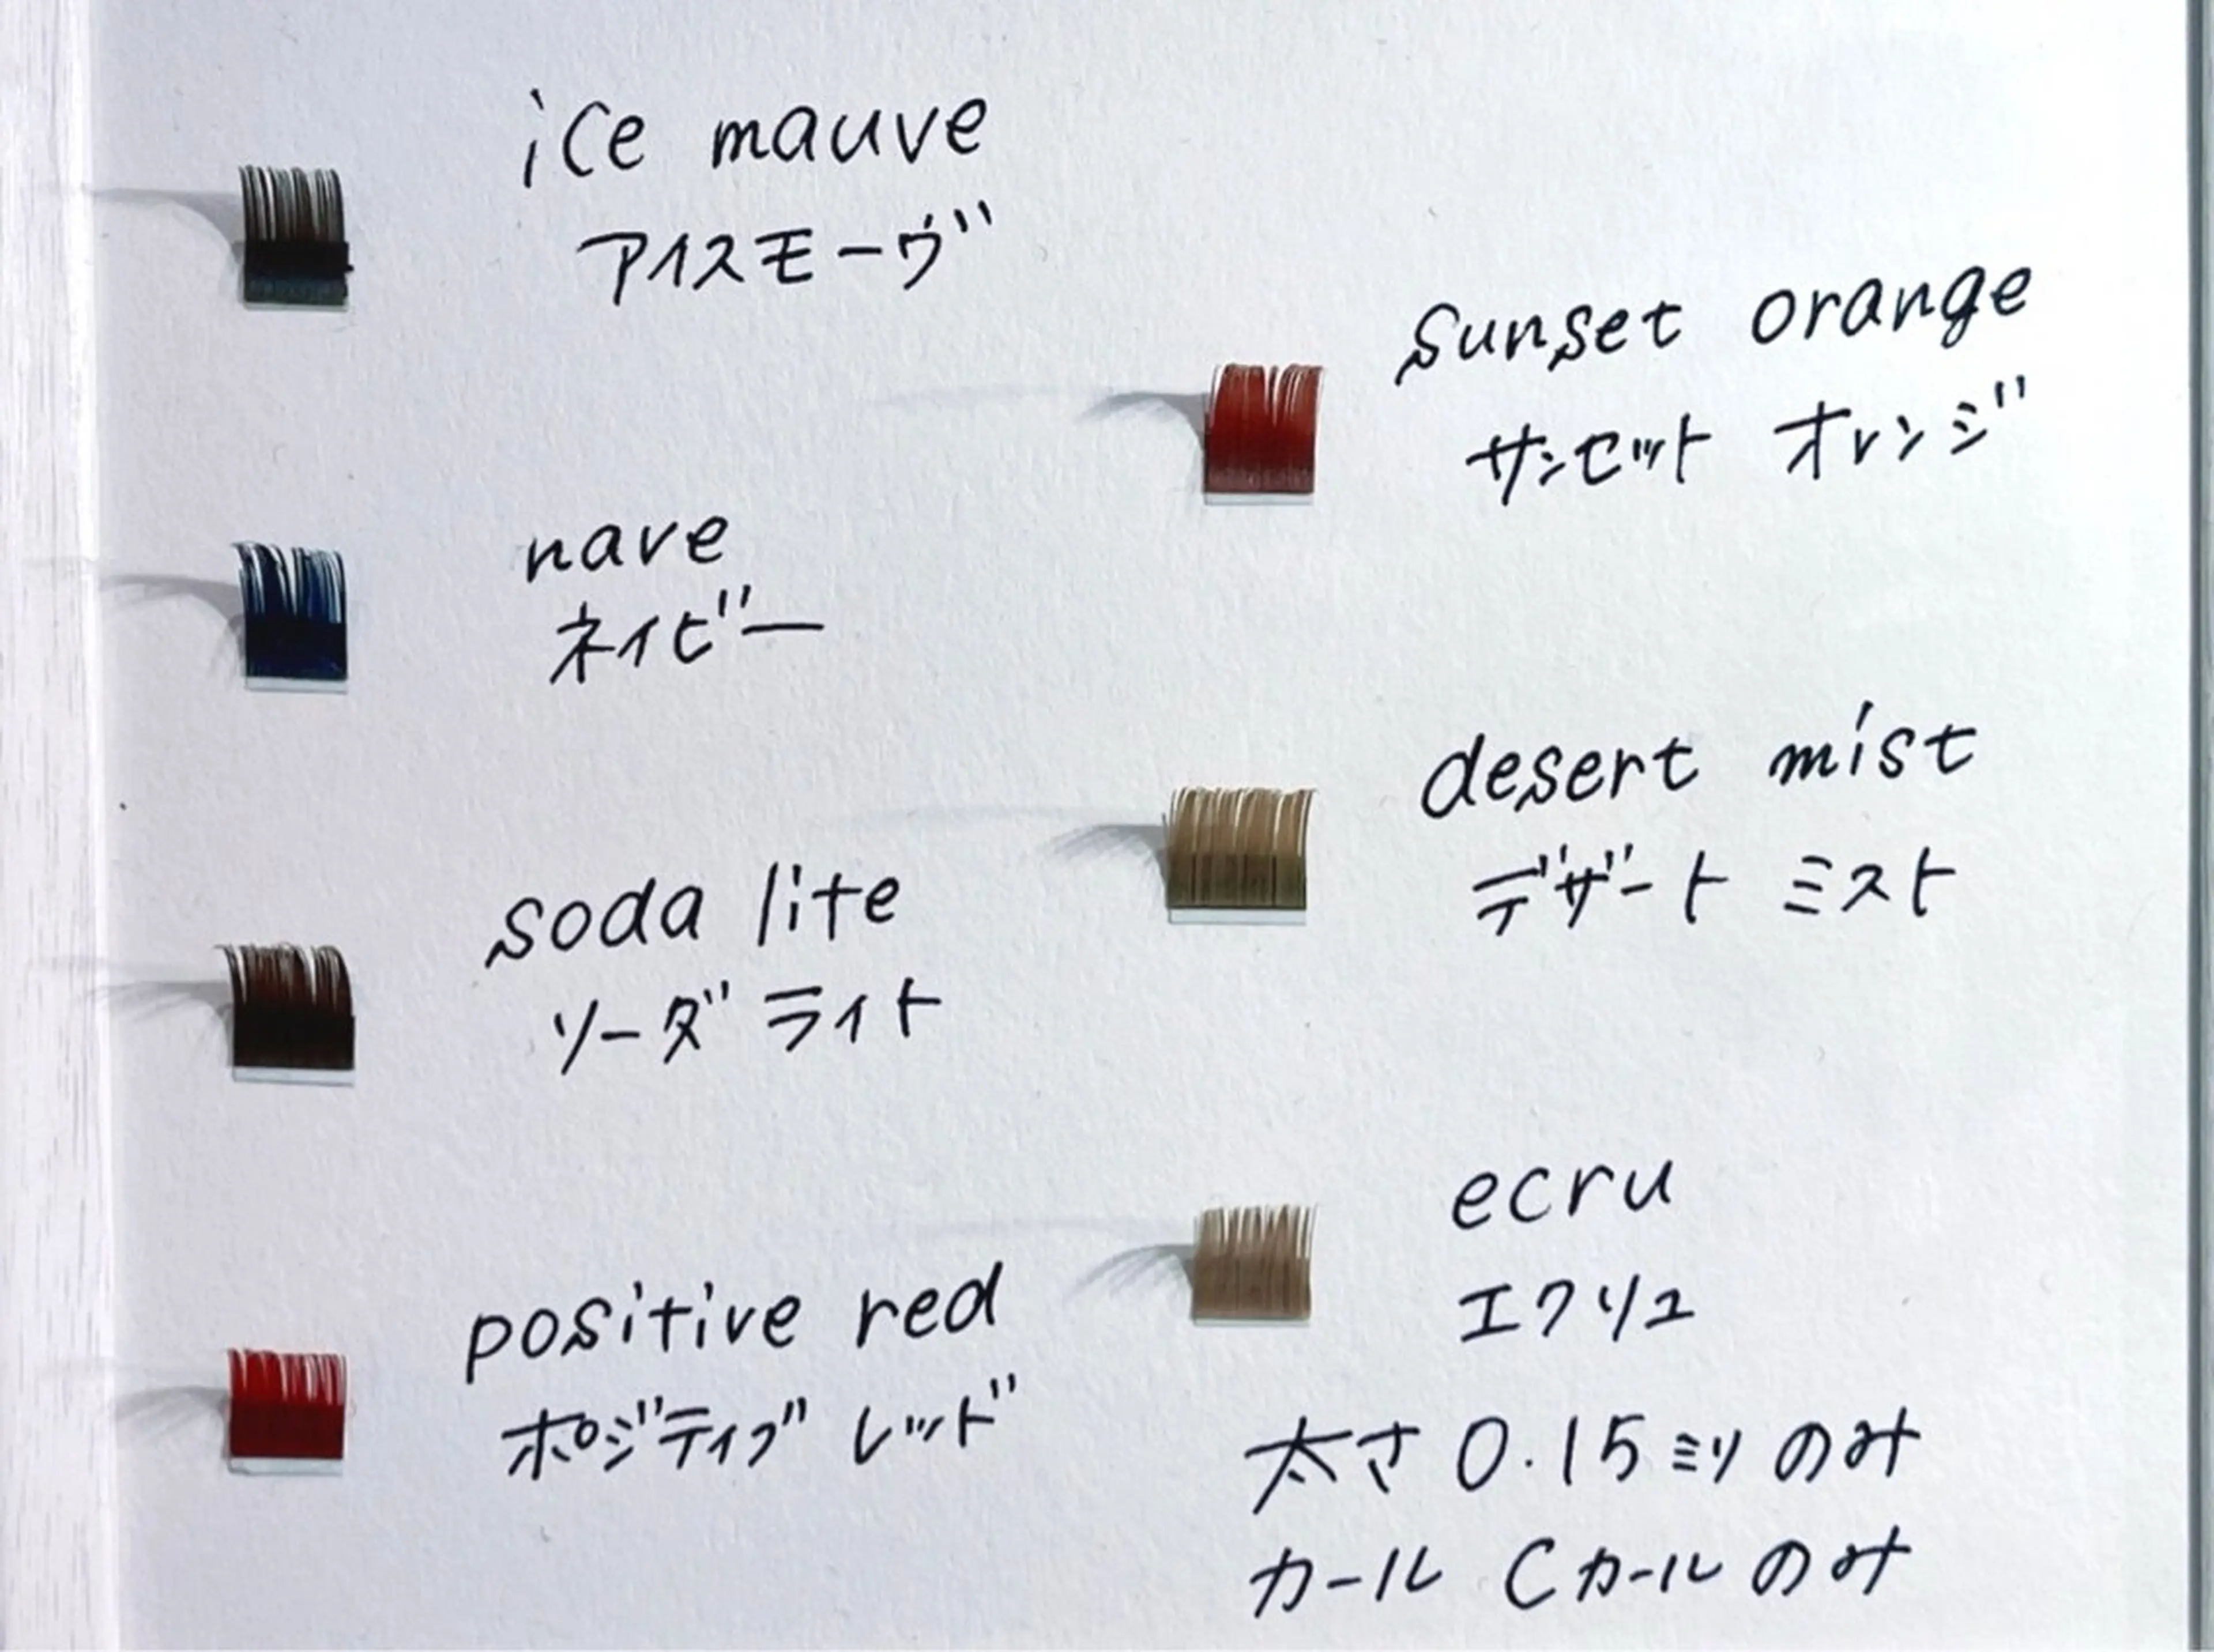 ice mauve
アイスモーヴ
nave
ネイビー
soda lite
ソーダ ライト
positive red
ポジティブ レッド
sunset orange
サンセット オレンジ
desert mist
デザート ミスト
ecru
エクリュ
太さ 0.15ミリ のみ
カール Cカール のみ